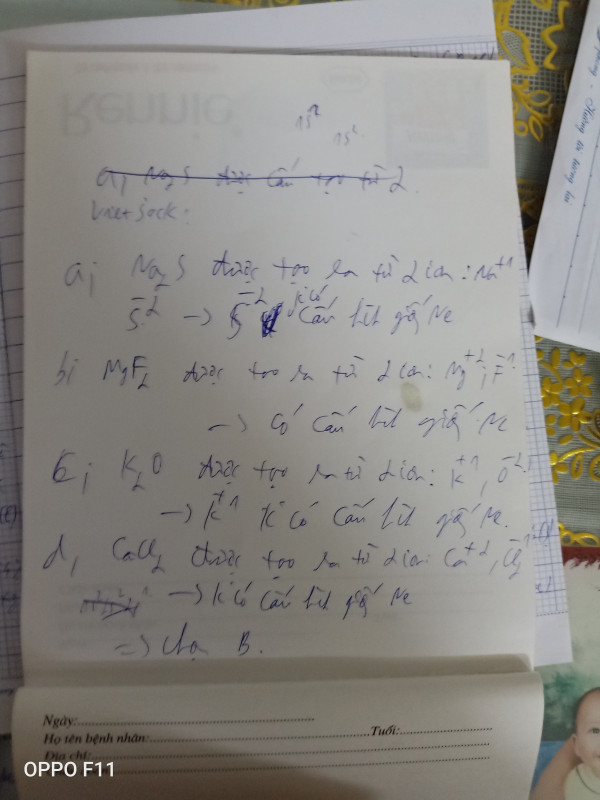 Rennie
1s²
1s²
a, Na₂S được cấu tạo từ 2
Vietjack:
a, Na₂S được tạo ra từ 2 ion: Na⁺¹
S⁻² -> S⁻² k có cấu hình giống Ne
b, MgF₂ được tạo ra từ 2 ion: Mg⁺², F⁻¹
-> Có cấu hình giống Ne
c, K₂O được tạo ra từ 2 ion: K⁺¹, O⁻²
-> K⁺¹ k có cấu hình giống Ne.
d, CaCl₂ được tạo ra từ 2 ion: Ca⁺², Cl⁻¹
-> k có cấu hình giống Ne
=> Chọn B.
Ngày:
Họ tên bệnh nhân: Tuổi:
Địa chỉ:
OPPO F11